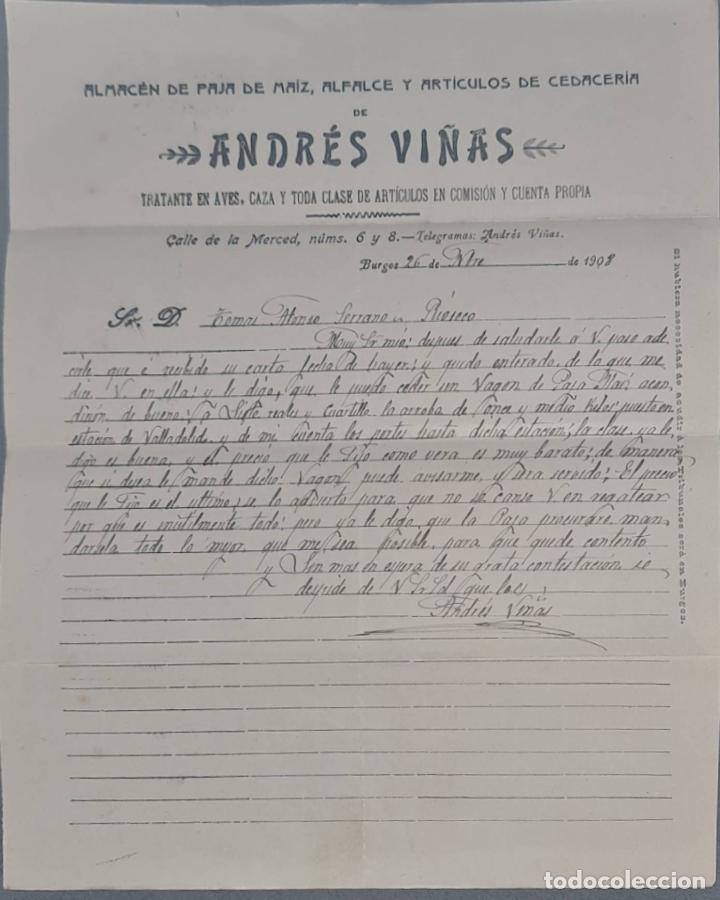 ALMACÉN DE PAJA DE MAÍZ, ALFALCE Y ARTÍCULOS DE CEDACERÍA
DE
ANDRÉS VIÑAS
TRATANTE EN AVES, CAZA Y TODA CLASE DE ARTÍCULOS EN COMISIÓN Y CUENTA PROPIA
Calle de la Merced, núms. 6 y 8.—Telegramas: Andrés Viñas.
Burgos 26 de Nbre de 1908
Sr. D. Tomas Alonso Serrano Rioseco
Muy Sr mio: despues de saludarle á V. paso a de
cirle que é recibido su carta fecha de hayer; y quedo enterado, de lo que me
dice V. en ella: y le digo, que le puedo ceder un Vagon de Paja Maiz acon
dicion de buena: á Siete reales y Cuartillo la arroba de Once y medio Kilos; puesto en
estación de Valladolid, y de mi cuenta los portes hasta dicha estación; la clase ya le
digo es buena, y el precio que le Fijo como vera es muy barato; de manera
que si desea le mande dicho Vagon puede avisarme, y sera servido; El precio
que le Fijo es el ultimo; se lo advierto para que no se canse V en regatear
por que es inutilmente todo: pero ya le digo, que la Paja procuraré man
darsela todo lo mejor que me sea posible, para que quede contento
y Sin mas en espera de su grata contestación se
despide de V S. S. que le
Andrés Viñas
Si hubiera necesidad de acudir á los Tribunales será en Burgos.
todocoleccion.net